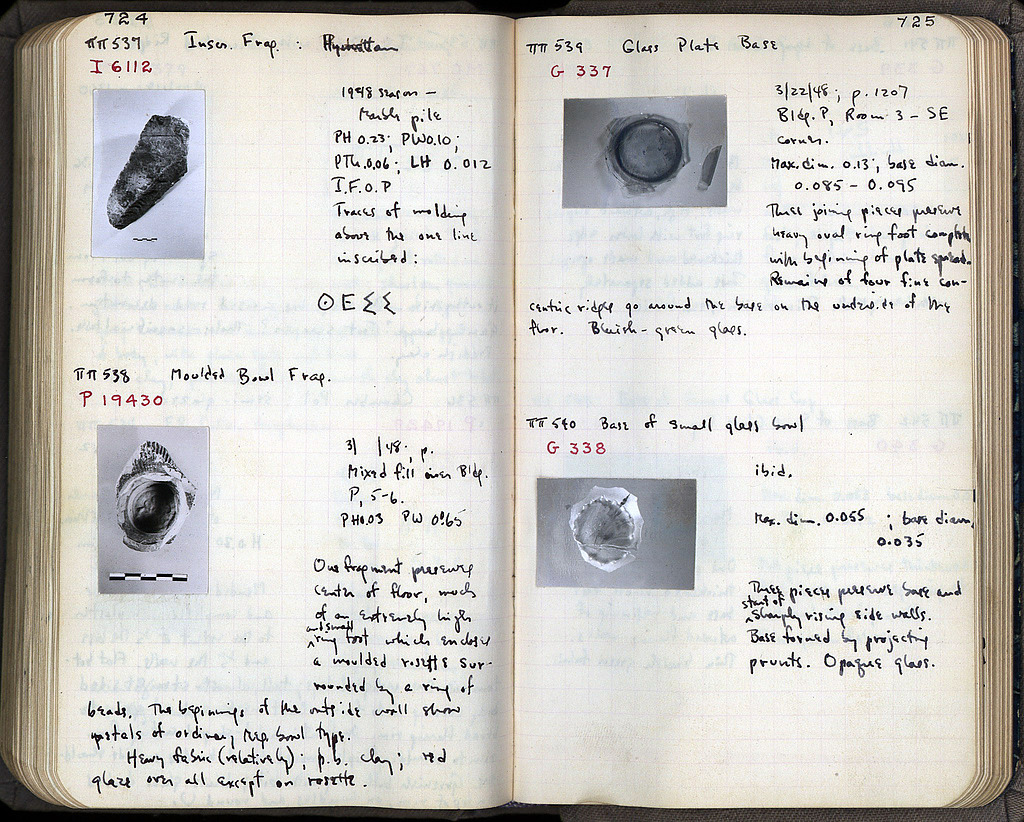 724
ΠΠ 537 Inscr. Frag. : Hymettian
I 6112
1948 season –
Marble pile
PH 0.23; PW 0.10;
PTh. 0.06; LH 0.012
I.F.O.P
Traces of molding
above the one line
inscribed:
ΘΕΣΣ
ΠΠ 538 Moulded Bowl Frag.
P 19430
3/ /48; p.
Mixed fill over Bldg.
P, 5-6.
PH 0.03 PW 0.065
One fragment preserves
center of floor, much
of an extremely high
and small
ring foot which encloses
a moulded rosette sur-
rounded by a ring of
beads. The beginnings of the outside wall show
petals of ordinary Meg. bowl type.
Heavy fabric (relatively); p.b. clay; red
glaze over all except on rosette.
725
ΠΠ 539 Glass Plate Base
G 337
3/22/48; p. 1207
Bldg. P, Room 3 – SE
corner.
Max. dim. 0.13; base diam.
0.085 – 0.095
Three joining pieces preserve
heavy oval ring foot complete
with beginning of plate spread.
Remains of four fine con-
centric ridges go around the base on the underside of the
floor. Bluish-green glass.
ΠΠ 540 Base of small glass bowl
G 338
ibid.
Max. dim. 0.055 ; base diam.
0.035
Three pieces preserve base and
start of
sharply rising side walls.
Base formed by projecting
prunts. Opaque glass.